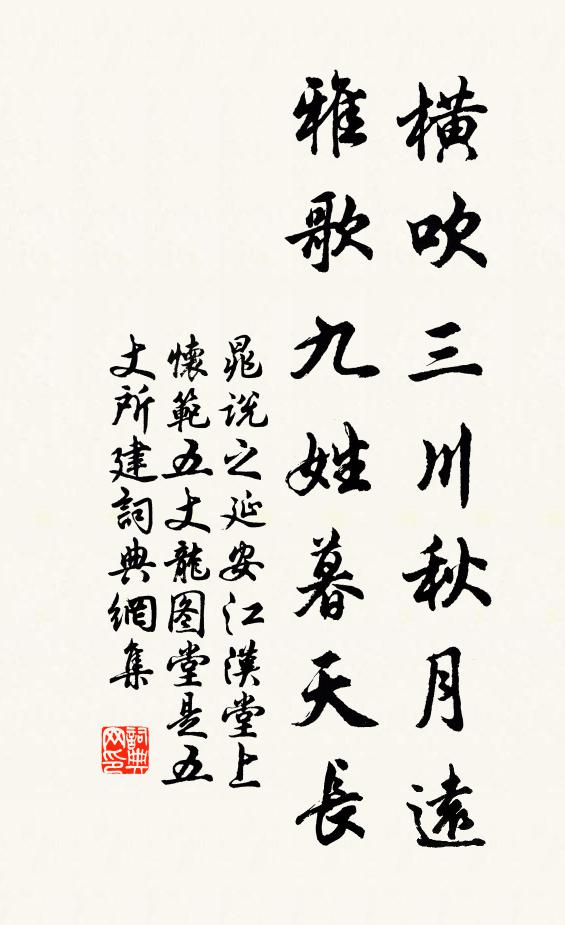 橫吹三川秋月遠
雅歌九姓暮天長
晁説之延安江漢堂上
懷範五丈龍图堂是五
丈所建詞典網集
詞典
网印